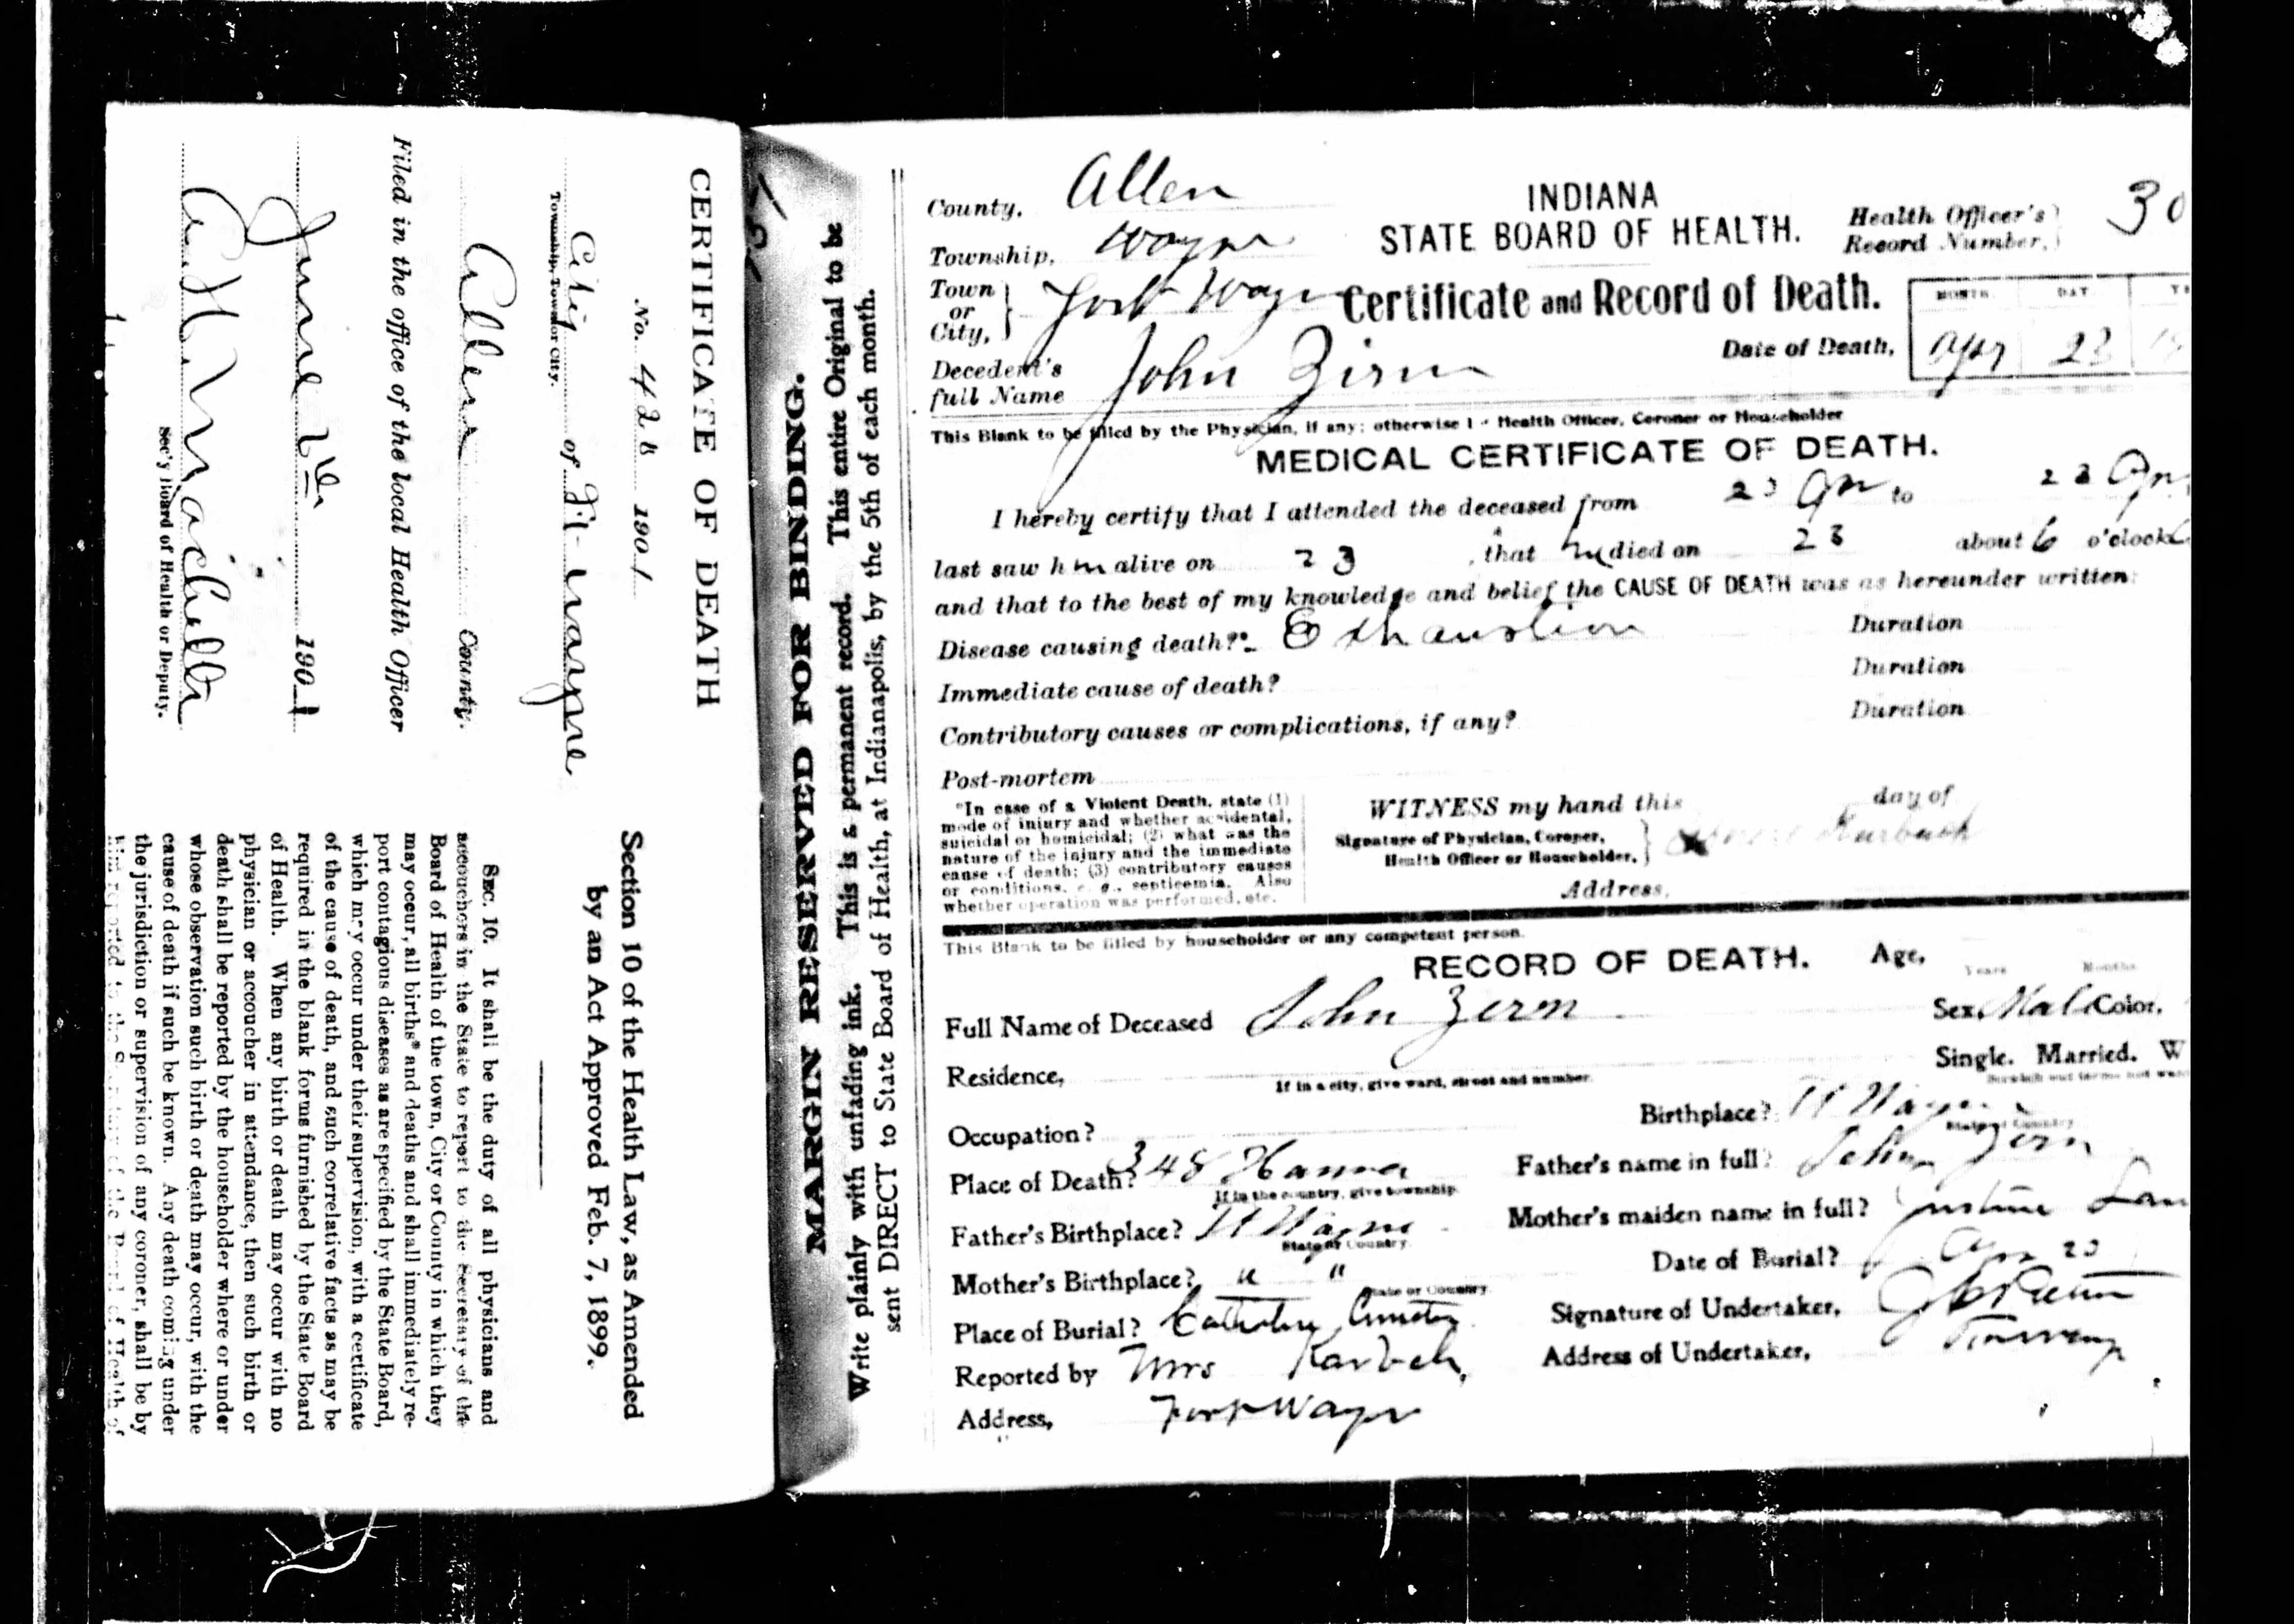 CERTIFICATE OF DEATH
No. 428 1901
City of Ft. Wayne
Township, Town or City.
Allen County.
Filed in the office of the local Health Officer
June 1901
Sec'y Board of Health or Deputy.
Section 10 of the Health Law, as Amended
by an Act Approved Feb. 7, 1899.
SEC. 10. It shall be the duty of all physicians and
accouchers in the State to report to the Secretary of the
Board of Health of the town, City or County in which they
may occur, all births* and deaths and shall immediately re-
port contagious diseases as are specified by the State Board,
which may occur under their supervision, with a certificate
of the cause of death, and such correlative facts as may be
required in the blank forms furnished by the State Board
of Health. When any birth or death may occur with no
physician or accoucher in attendance, then such birth or
death shall be reported by the householder where or under
whose observation such birth or death may occur, with the
cause of death if such be known. Any death coming under
the jurisdiction or supervision of any coroner, shall be by
MARGIN RESERVED FOR BINDING.
Write plainly with unfading ink. This is a permanent record. This entire Original to be
sent DIRECT to State Board of Health, at Indianapolis, by the 5th of each month.
County, Allen
INDIANA
STATE BOARD OF HEALTH.
Health Officer's Record Number, 30
Township, Wayne
Town or City, Fort Wayne
Certificate and Record of Death.
MONTH DAY
Date of Death, Apr 23
Decedent's full Name John Zirn
This Blank to be filled by the Physician, if any; otherwise Health Officer, Coroner or Householder
MEDICAL CERTIFICATE OF DEATH.
I hereby certify that I attended the deceased from 23 Apr to 23 Apr
last saw him alive on 23, that he died on 23 about 6 o'clock
and that to the best of my knowledge and belief the CAUSE OF DEATH was as hereunder written:
Disease causing death?* Exhaustion Duration
Immediate cause of death? Duration
Contributory causes or complications, if any? Duration
Post-mortem
*In case of a Violent Death, state (1)
mode of injury and whether accidental,
suicidal or homicidal; (2) what was the
nature of the injury and the immediate
cause of death; (3) contributory causes
or conditions, e. g., septicemia. Also
whether operation was performed, etc.
WITNESS my hand this day of
Signature of Physician, Coroner,
Health Officer or Householder,
Address,
This Blank to be filled by householder or any competent person.
RECORD OF DEATH. Age, Years Months
Full Name of Deceased John Zern Sex, Male Color,
Residence, Single. Married. W
If in a city, give ward, street and number.
Occupation? Birthplace? Ft Wayne
State or Country
Place of Death? 348 Hanna Father's name in full? John Zern
If in the country, give township.
Father's Birthplace? Ft Wayne Mother's maiden name in full? Justine
State or Country.
Mother's Birthplace? " " Date of Burial? Apr 23
State or Country.
Place of Burial? Catholic Cemetery Signature of Undertaker,
Reported by Mrs Karbach, Address of Undertaker,
Address, Fort Wayne